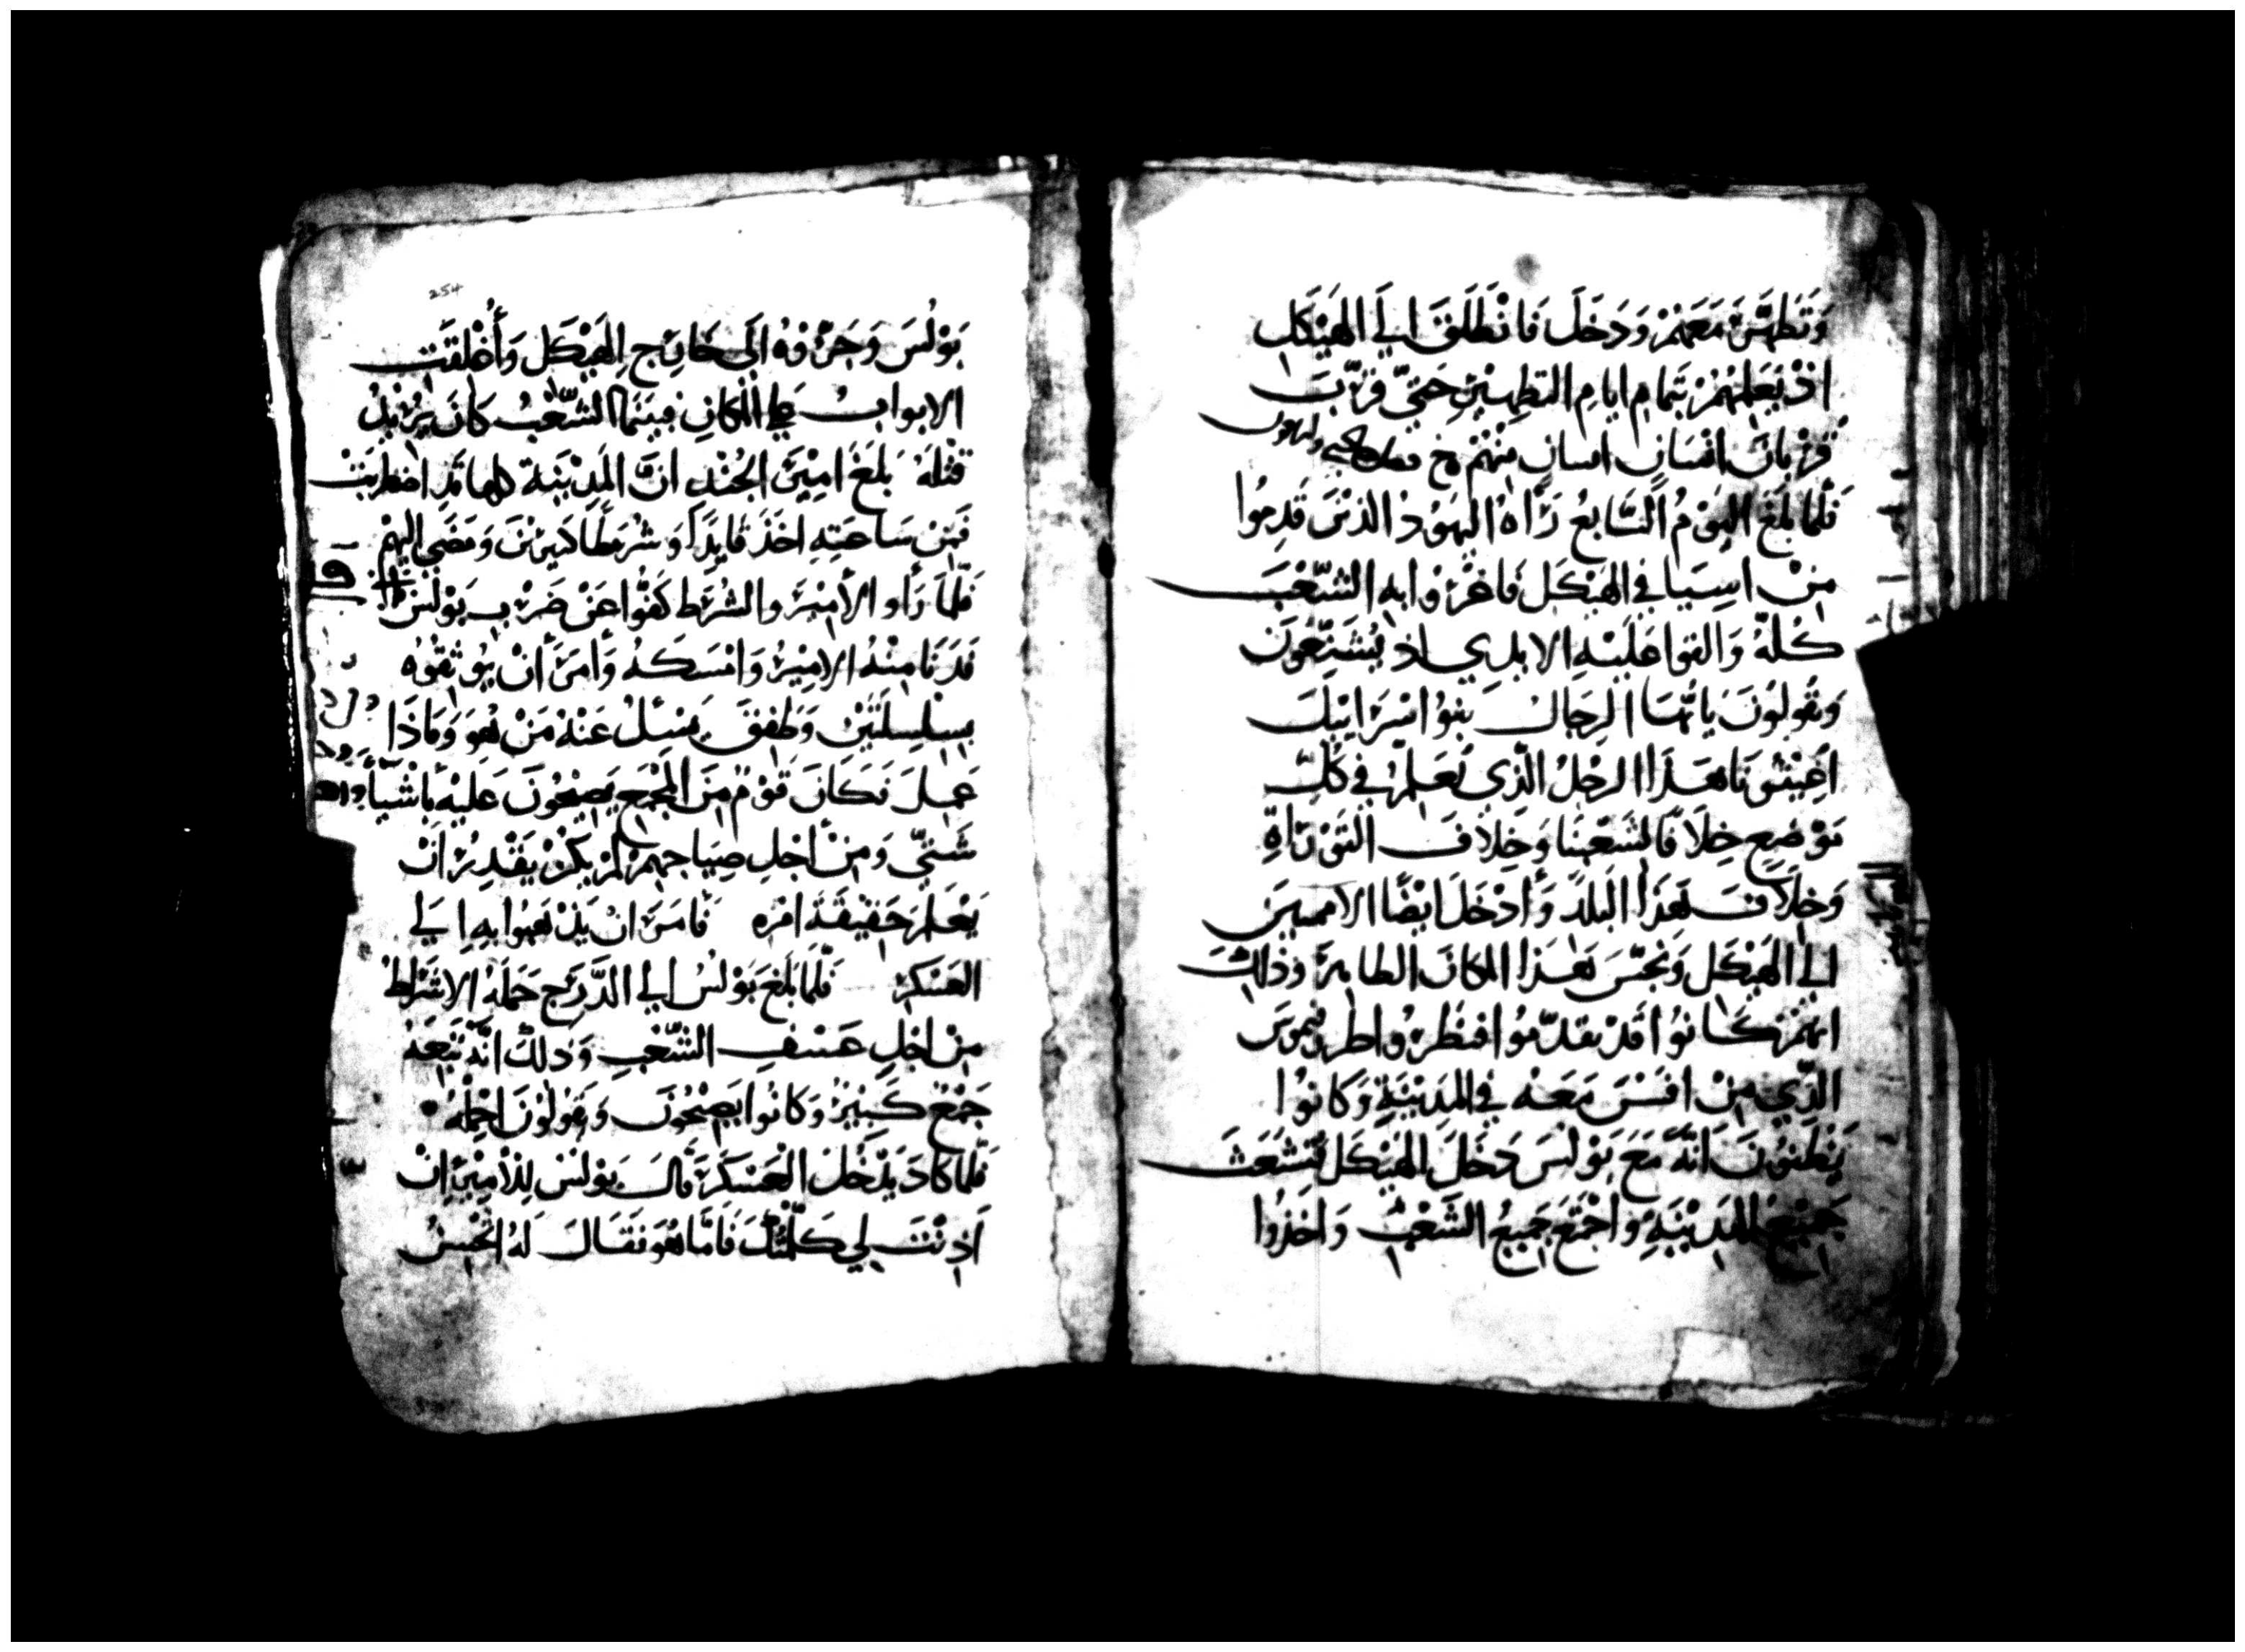 وَتَطَهَّرَ مَعَهُمْ وَدَخَلَ فَانْطَلَقَ اِلَي الهَيْكَلِ
اذْ يُعَلِمُهُمْ بِتَمامِ ايامِ التَطهِيْرِ حَتيّ قرّبَ
قرْبانَ انْسَانِ انسانٍ مِنْهُمْ
فَلَمَّا بَلَغَ اليَوْمُ السَّابِعُ رَأَاهُ اليَهوُد الذيْنَ قَدِمُوا
مِنْ اسِيَا في الهَيْكَل فَاغرْوا به الشَّعْبَ
كُلهُ وَالقوا عَلَيْهِ الايدِي اذ يُشَنِّعُونَ
وَيَقُولوُنَ يا أيُّهَا الرِجَالُ بَنوُا اسْرَايْيلَ
اَغِيْثُونَا هَذَا الرجُلُ الَّذِي يُعَلِمُ في كُلِّ
مَوْضِعٍ خِلَافًا لشَعْبِنَا وَخِلَافَ التَّوْرَاةِ
وَخِلَافَ هَذَا البَلَد وَأَدْخَلَ ايْضًا الامميينَ
الي الهَيْكَل وَنَجَّسَ هَذا المكانَ الطاهِرَ وذلِكَ
انهُمْ كَانوُا قَدْ تقَدّمُوا فنَظَرُوا طروفيموسَ
الَّذِي مِنْ افَسُسَ مَعَهُ في المَدِيْنَةِ وَكَانوُا
يَظُنوُنَ اَنَّهُ مَعَ بَوْلسَ دَخَلَ الهَيْكَلَ فَتَشَعَّثَ
جَمِيْعُ المَدِيْنَةِ وَاجْتَمَعَ جَمِيعُ الشَّعْبِ وَاخَذُوا
254
بَوْلُسَ وَجَرُّوْهُ اِلَى خَارِج الهَيْكَل وَأُغْلِقَت
الابوابُ عَلي المَكانِ فبَيْنَما الشَّعْبُ كَانَ يُرِيْدُ
قَتْلَهُ بَلَغَ امِيْرَ الجُنْدِ انَّ المَدِيْنَةَ كلها قَدِ اضطرَبَتْ
فَمِنْ سَاعَتِهِ اَخَذَ قَايدًا وَشُرَطًا كَثِيرِيْنَ وَمَضَى اليْهِمْ
فَلَمَّا رَأوا الأمِيْرَ والشُرَط كَفُّوا عَنْ ضَرْبِ بَوْلسَ
فَدَنَا مِنْهُ الامِيْرُ وَامْسَكَهُ وَأمَرَ أنْ يُوثقُوهُ
بِسِلْسِلَتَيْن وَطَفِقَ يَسْئِلُ عَنْهُ مَنْ هُوَ وَمَاذَا
عَمِلَ فَكَانَ قَوْمٌ مِنَ المَجْمَعِ يَصِيْحُونَ عَلَيْهِ بأشْيَاءً
شَتيّ وَمِنْ أجْلِ صِيَاحِهِمْ لَمْ يَكُنْ يَقْدِرُ انْ
يَعْلمَ حَقِيْقَةَ امْرِهِ فَأمَرَ انْ يَذْهَبُوا بِهِ اِلَي
العَسْكَرِ فَلَمّا بَلَغَ بَوْلسُ الي الدَّرَج حَمَلَهُ الاشْرَاطُ
مِنْ اجْلِ عَسْفِ الشَّعْبِ وَذلكَ انّه تَبِعَهُ
جَمْعٌ كَبِيْرٌ وَكَانوُا يَصِيْحُونَ وَيَقولوُنَ احْمِلْهُ
فَلَمّا كَادَ يَدْخُلُ العَسْكَرَ قَالَ بَوْلسُ لِلأمِيْرِ انْ
اَذِنْتَ لي كَلّمْتُكَ فَامّا هُوَ فَقَالَ لَهُ اتُحْسِنُ